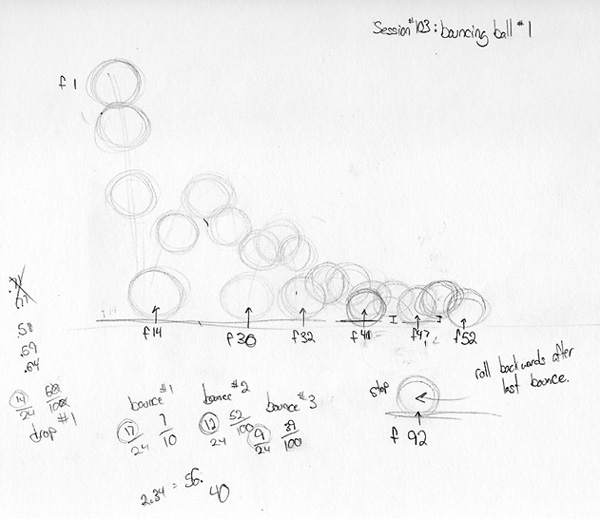 Session #103: bouncing ball #1
f 1
f14
f30
f32
f41
f47
f52
.58
.59
.64
14/24
drop #1
bounce #1
17/24 7/10
bounce #2
12/24 52/100
bounce #3
9/24 39/100
2.34 = 56.
40
stop
f 92
roll backwards after
last bounce.